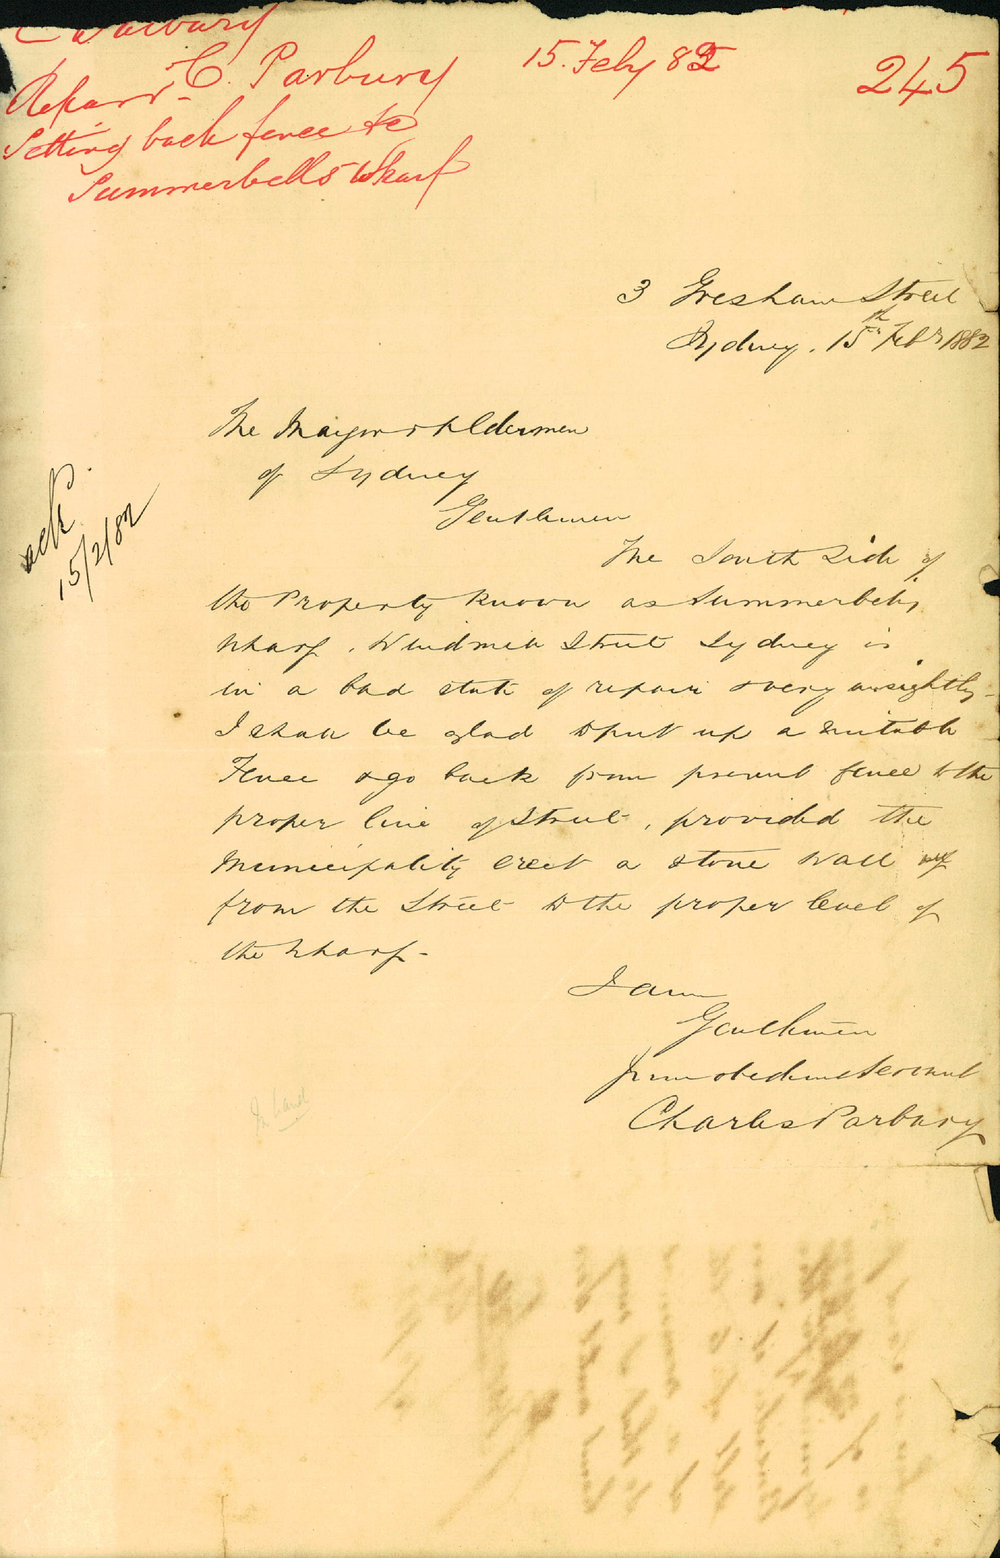 C Parbury
C. Parbury
15. Feby 82
245
Setting back fence to
Summerbells Wharf
3 Gresham Street
Sydney. 15th Feby 1882
The Mayor & Aldermen
of Sydney
Gentlemen
ack
15/2/82
The South Side of
the Property known as Summerbells
Wharf. Windmill Street Sydney is
in a bad state of repair & very unsightly -
I shall be glad to put up a suitable
Fence & go back from present fence to the
proper line of Street, provided the
Municipality erect a stone wall up
from the Street to the proper level of
the Wharf -
I am
Gentlemen
Your obedient Servant
Charles Parbury